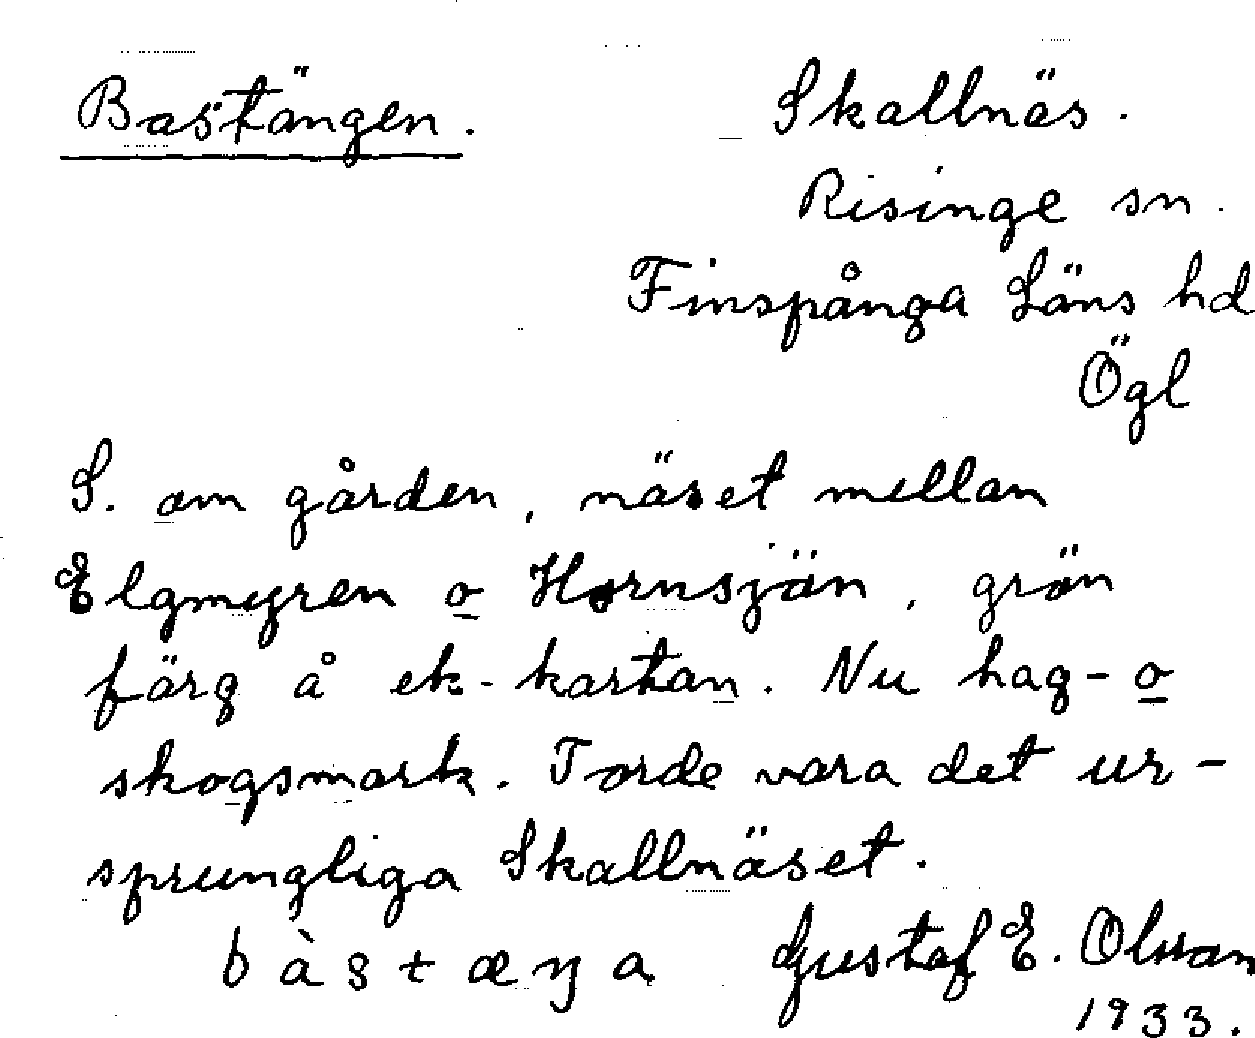 Bastängen.
Skallnäs.
Risinge sn.
Finspånga Läns hd
Ögl
S. om gården, näset mellan
Elgmyren o Hornsjön, grön
färg å ek-kartan. Nu hag- o
skogsmark. Torde vara det ur-
sprungliga Skallnäset.
bàstæŋa Gustaf E. Olsson
1933.